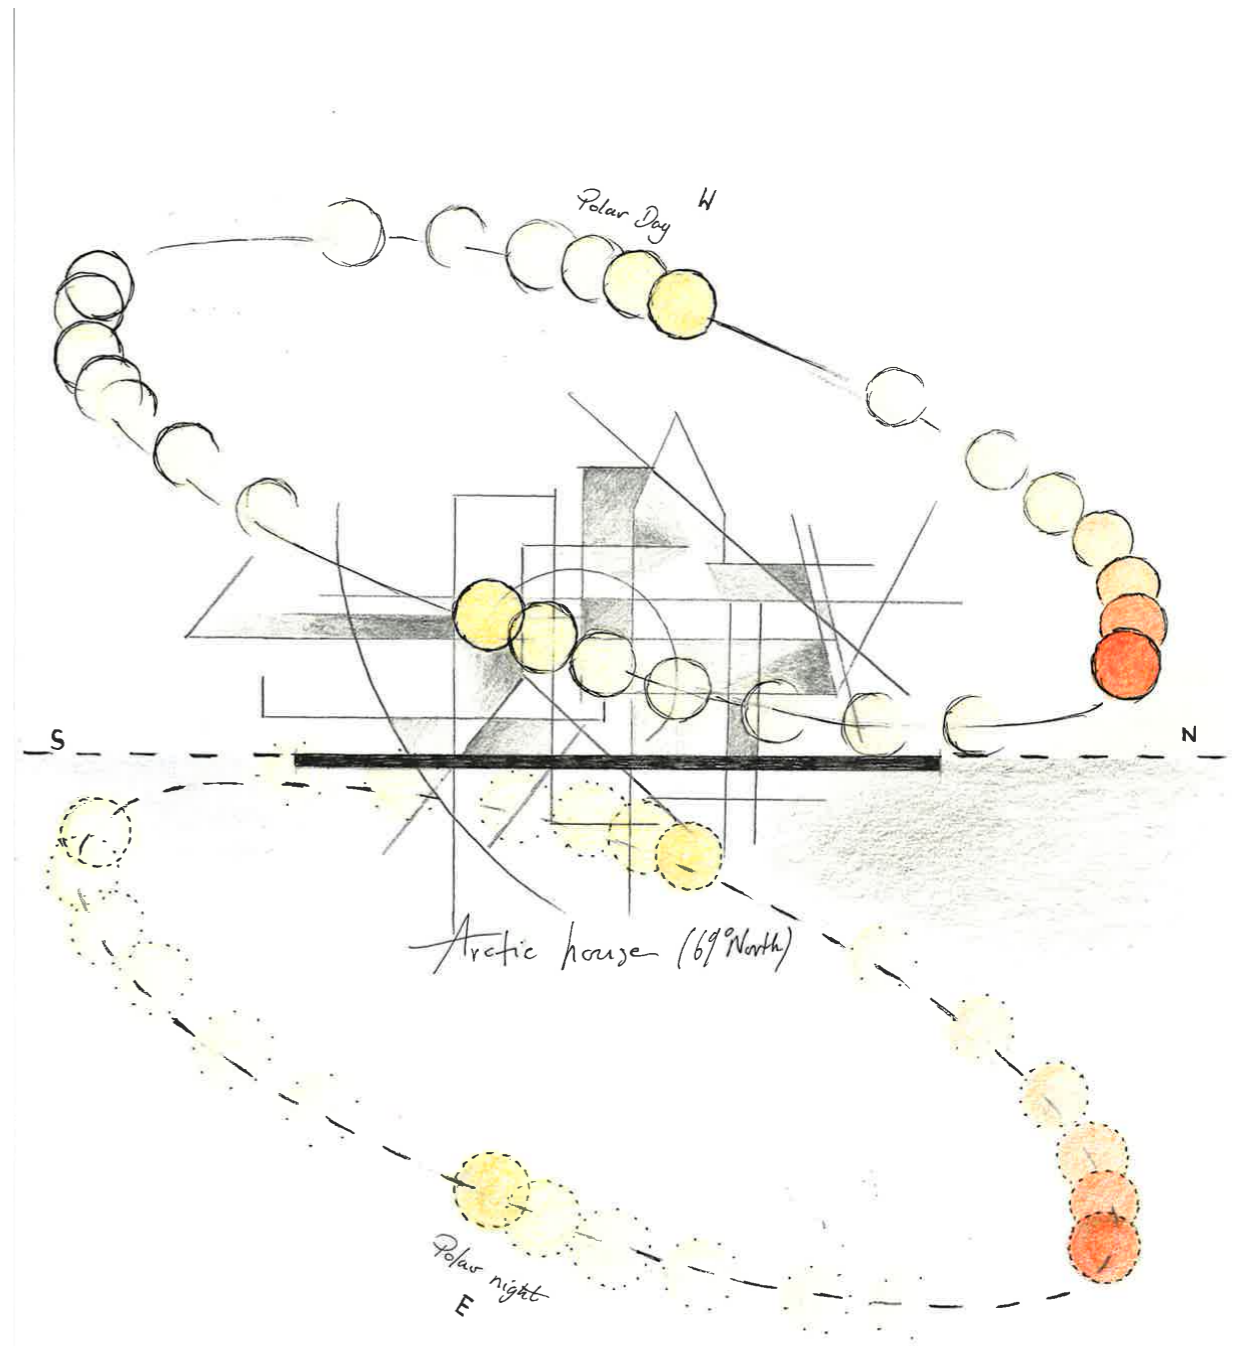 Polar Day
W
S
N
Arctic house (69° North)
Polar night
E